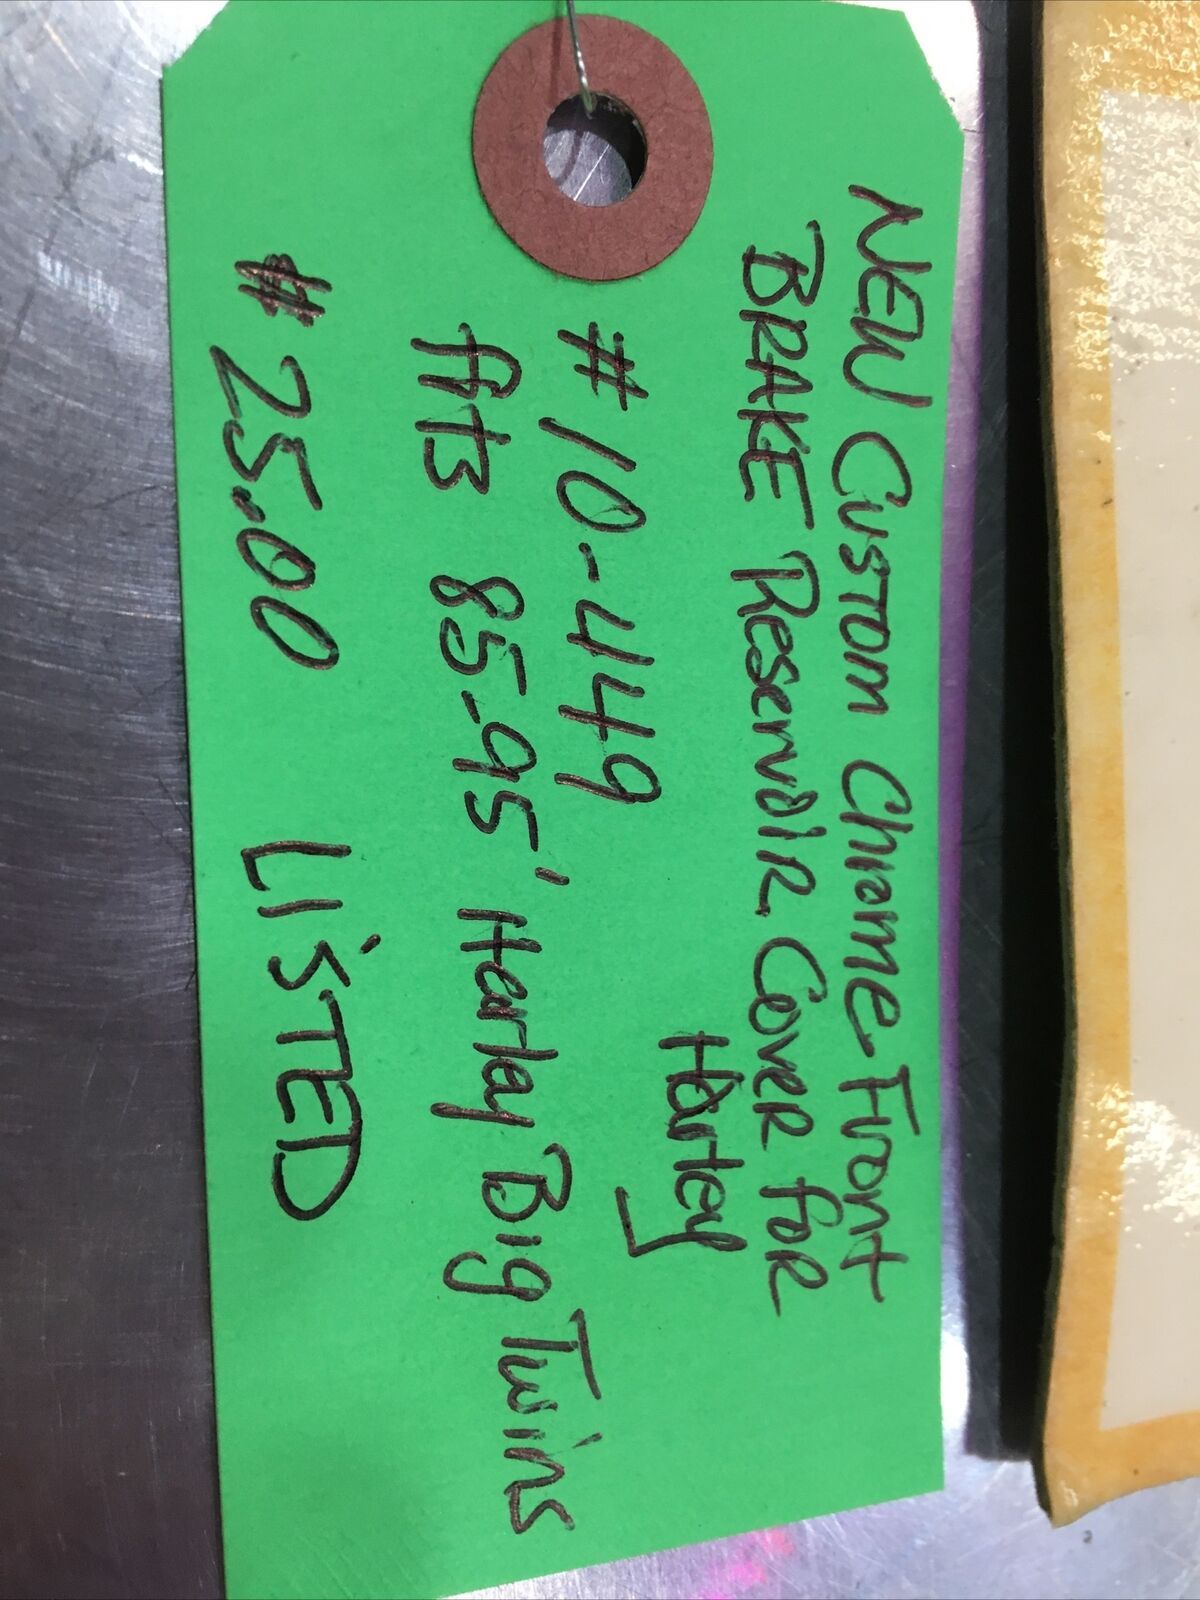 NEW Custom Chrome-Front
BRAKE Reservoir Cover for
Harley
#10-449
fits 85-95' Harley Big Twins
# 25.00 LISTED